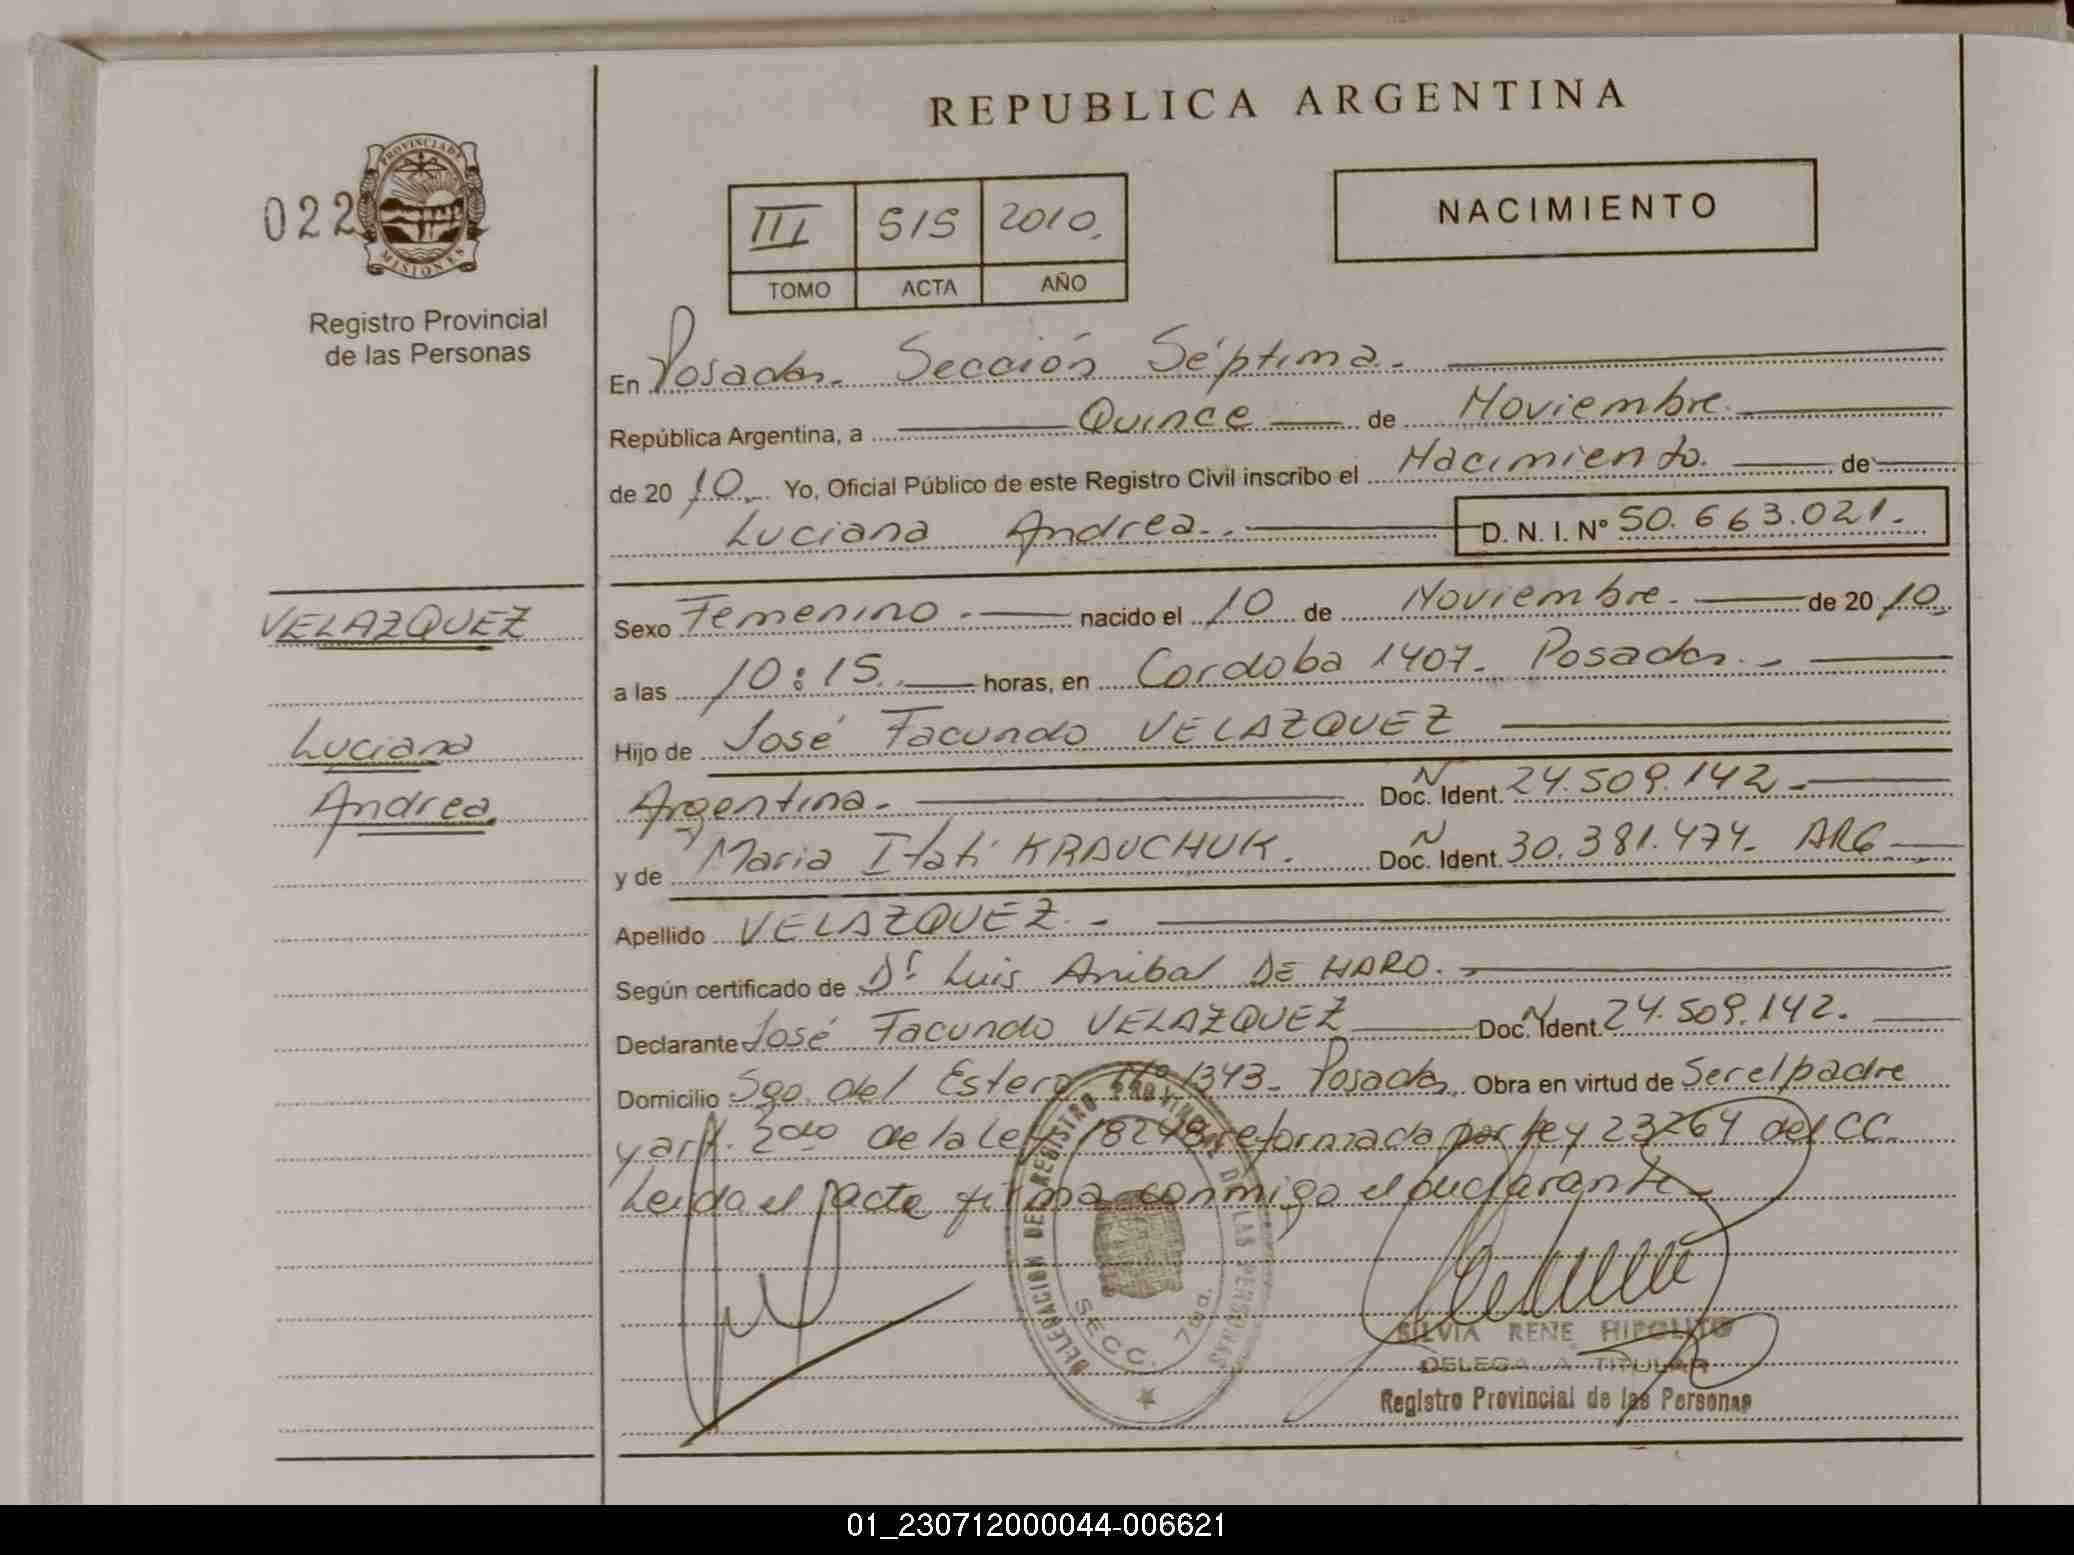 REPUBLICA ARGENTINA
022
PROVINCIA DE
MISIONES
Registro Provincial
de las Personas
III 515 2010.
TOMO ACTA AÑO
NACIMIENTO
En Posadas. Sección Séptima.
República Argentina, a Quince de Noviembre
de 20 10 Yo, Oficial Público de este Registro Civil inscribo el Nacimiento. de
Luciana Andrea. D. N. I. Nº 50.663.021.
VELAZQUEZ
Luciana
Andrea
Sexo Femenino. nacido el 10 de Noviembre. de 20 10.
a las 10:15. horas, en Cordoba 1407. Posadas.
Hijo de José Facundo VELAZQUEZ
Argentina. N Doc. Ident. 24.509.142.
y de Maria Itatí KRAUCHUK. N Doc. Ident. 30.381.474. ARG
Apellido VELAZQUEZ.
Según certificado de Dr Luis Anibal DE HARO.
Declarante José Facundo VELAZQUEZ N Doc. Ident. 24.509.142.
Domicilio Sgo. del Estero Nº 1343. Posadas. Obra en virtud de Ser el padre
y art. 2do de la Ley 18248 reformada por ley 23264 del CC.
Leída el acta firma conmigo el declarante
DELEGACION DEL REGISTRO PROVINCIAL DE LAS PERSONAS
SECC. 7ma.
SILVIA RENE HIPOLITO
DELEGADA TITULAR
Registro Provincial de las Personas
01_230712000044-006621